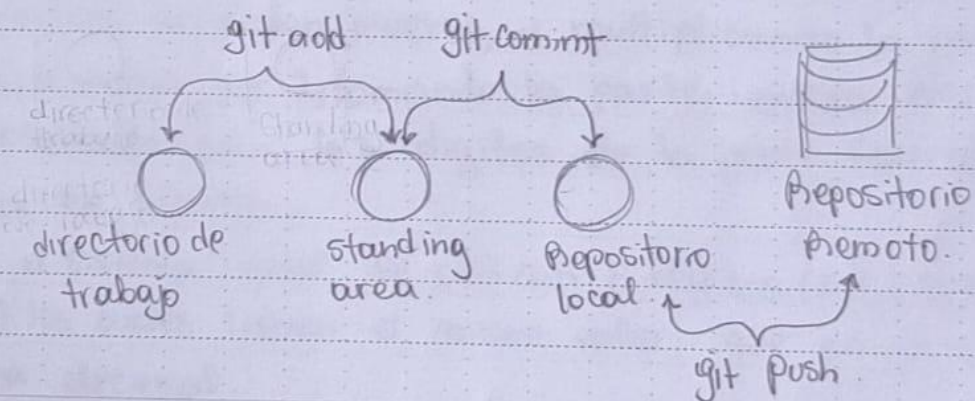 git add
git commit
directorio de
trabajo
standing
area
Repositorio
local
Repositorio
Remoto.
git push